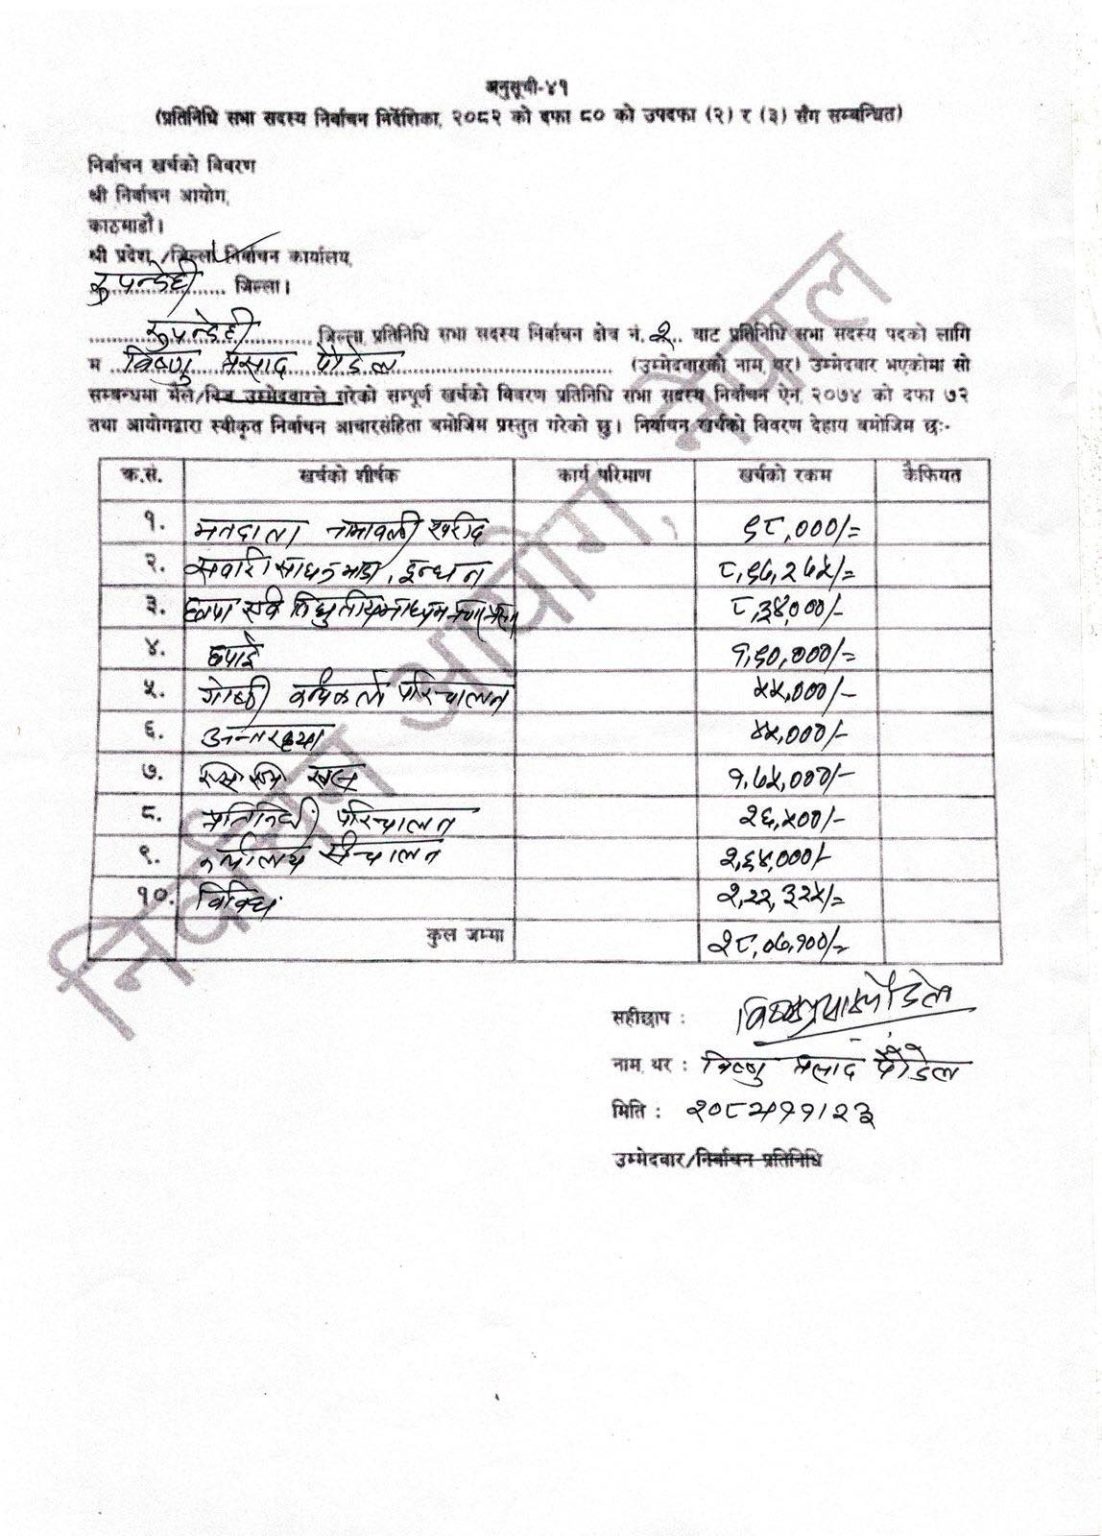 अनुसूची-४१
(प्रतिनिधि सभा सदस्य निर्वाचन निर्देशिका, २०८२ को दफा ८० को उपदफा (२) र (३) सँग सम्बन्धित)
निर्वाचन खर्चको विवरण
श्री निर्वाचन आयोग,
काठमाडौं।
श्री प्रदेश /जिल्ला निर्वाचन कार्यालय,
रुपन्देही जिल्ला।
रुपन्देही जिल्ला प्रतिनिधि सभा सदस्य निर्वाचन क्षेत्र नं. २ बाट प्रतिनिधि सभा सदस्य पदको लागि
म विष्णु प्रसाद पौडेल (उम्मेदवारको नाम, थर) उम्मेदवार भएकोमा सो
सम्बन्धमा मैले/निज उम्मेदवारले गरेको सम्पूर्ण खर्चको विवरण प्रतिनिधि सभा सदस्य निर्वाचन ऐन, २०७४ को दफा ७२
तथा आयोगद्वारा स्वीकृत निर्वाचन आचारसंहिता बमोजिम प्रस्तुत गरेको छु। निर्वाचन खर्चको विवरण देहाय बमोजिम छः-
क.सं. खर्चको शीर्षक कार्य परिमाण खर्चको रकम कैफियत
१. मतदाता नामावली खरीद ६८,०००/=
२. सवारी साधन भाडा, इन्धन ८,६७,२७५/=
३. छापा एवं विधुतिय माध्यम ८,३४,०००/-
४. छपाई १,६०,०००/=
५. गोष्ठी परिचालन ५५,०००/-
६. अन्तरक्रिया ४५,०००/-
७. १,७५,०००/-
८. प्रतिनिधी परिचालन २६,५००/-
९. कार्यालय संचालन २,६४,०००/-
१०. विविध २,२२,३२५/=
कुल जम्मा २८,०७,१००/=
सहीछाप : विष्णुप्रसाद पौडेल
नाम, थर : विष्णु प्रसाद पौडेल
मिति : २०८२।११।२३
उम्मेदवार/निर्वाचन प्रतिनिधि
निर्वाचन आयोग, नेपाल